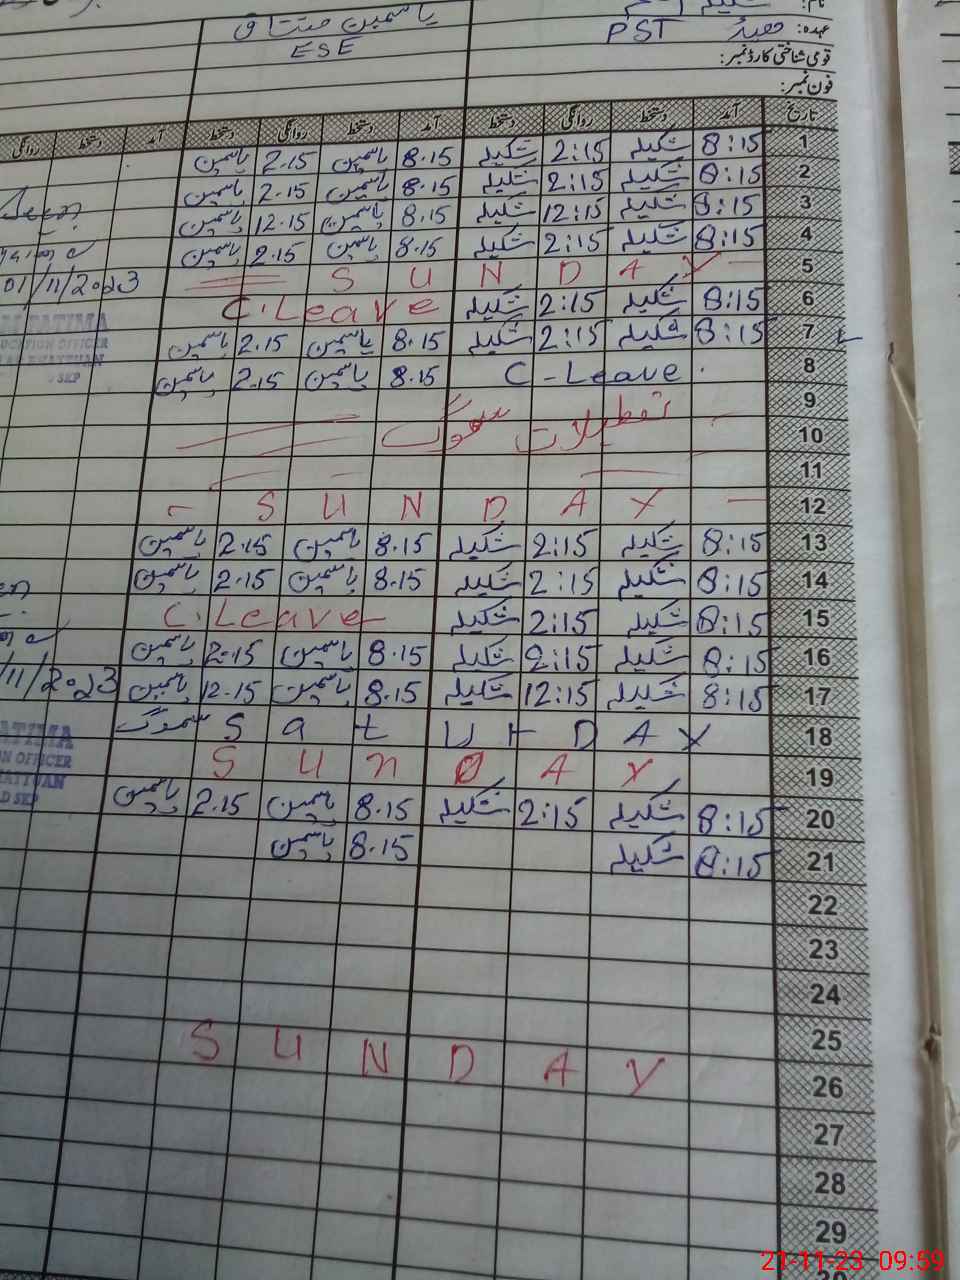 نام:
یاسمین مشتاق
عہدہ: ہیڈ PST ESE
قومی شناختی کارڈ نمبر:
فون نمبر:
تاریخ آمد دستخط روانگی دستخط آمد دستخط روانگی دستخط آمد دستخط روانگی
1 8:15 شکیلہ 2:15 شکیلہ 8.15 یاسمین 2.15 یاسمین
2 8:15 شکیلہ 2:15 شکیلہ 8.15 یاسمین 2.15 یاسمین
3 8:15 شکیلہ 12:15 شکیلہ 8.15 یاسمین 12.15 یاسمین
4 8:15 شکیلہ 2:15 شکیلہ 8.15 یاسمین 2.15 یاسمین
5 SUNDAY
01/11/2023
6 8:15 شکیلہ 2:15 شکیلہ C.Leave
7 8:15 شکیلہ 2:15 شکیلہ 8.15 یاسمین 2.15 یاسمین
FATIMA
OFFICER
8 C-Leave. 8.15 یاسمین 2.15 یاسمین
9
10 تعطیلات سموگ
11
12 - SUNDAY -
13 8:15 شکیلہ 2:15 شکیلہ 8.15 یاسمین 2.15 یاسمین
14 8:15 شکیلہ 2:15 شکیلہ 8.15 یاسمین 2.15 یاسمین
15 8:15 شکیلہ 2:15 شکیلہ C.Leave
16 8:15 شکیلہ 2:15 شکیلہ 8.15 یاسمین 2.15 یاسمین
17 8:15 شکیلہ 12:15 شکیلہ 8.15 یاسمین 12.15 یاسمین
/11/2023
18 SatURDAY سموگ
19 SUNDAY
OFFICER
20 8:15 شکیلہ 2:15 شکیلہ 8.15 یاسمین 2.15 یاسمین
21 8:15 شکیلہ 8.15 یاسمین
22
23
24
25
26 SUNDAY
27
28
29
21-11-23 09:59